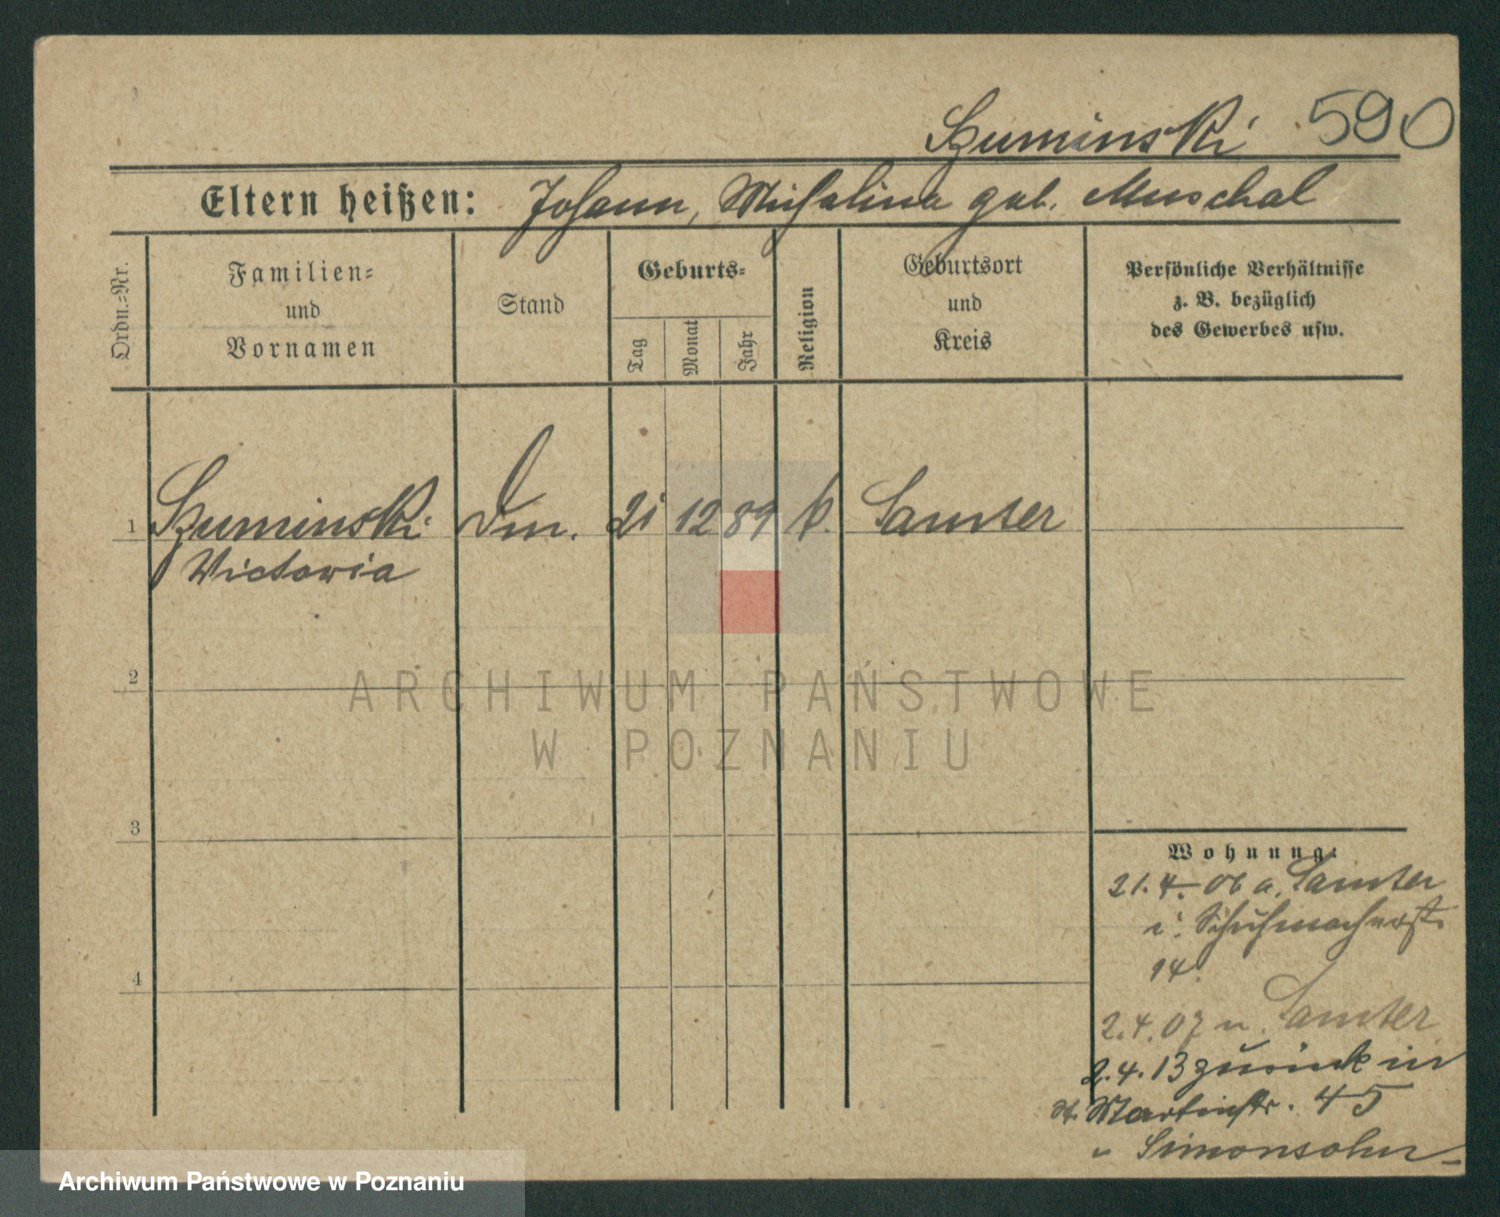 Szuminski 590
Eltern heißen: Johann, Michalina geb. Muschal
Ordn.=Nr.
Familien=
und
Vornamen
Stand
Geburts=
Tag
Monat
Jahr
Religion
Geburtsort
und
Kreis
Persönliche Verhältnisse
z. B. bezüglich
des Gewerbes usw.
1 Szuminski 21 12 89 k. Samter
Victoria
2
3
4
Wohnung:
21.4.06 a. Samter
i. Schuhmacherst.
14.
2.4.07 n. Samter
2.4.13 zurück in
St. Martinstr. 45
Simonsohn
ARCHIWUM PAŃSTWOWE
W POZNANIU
Archiwum Państwowe w Poznaniu